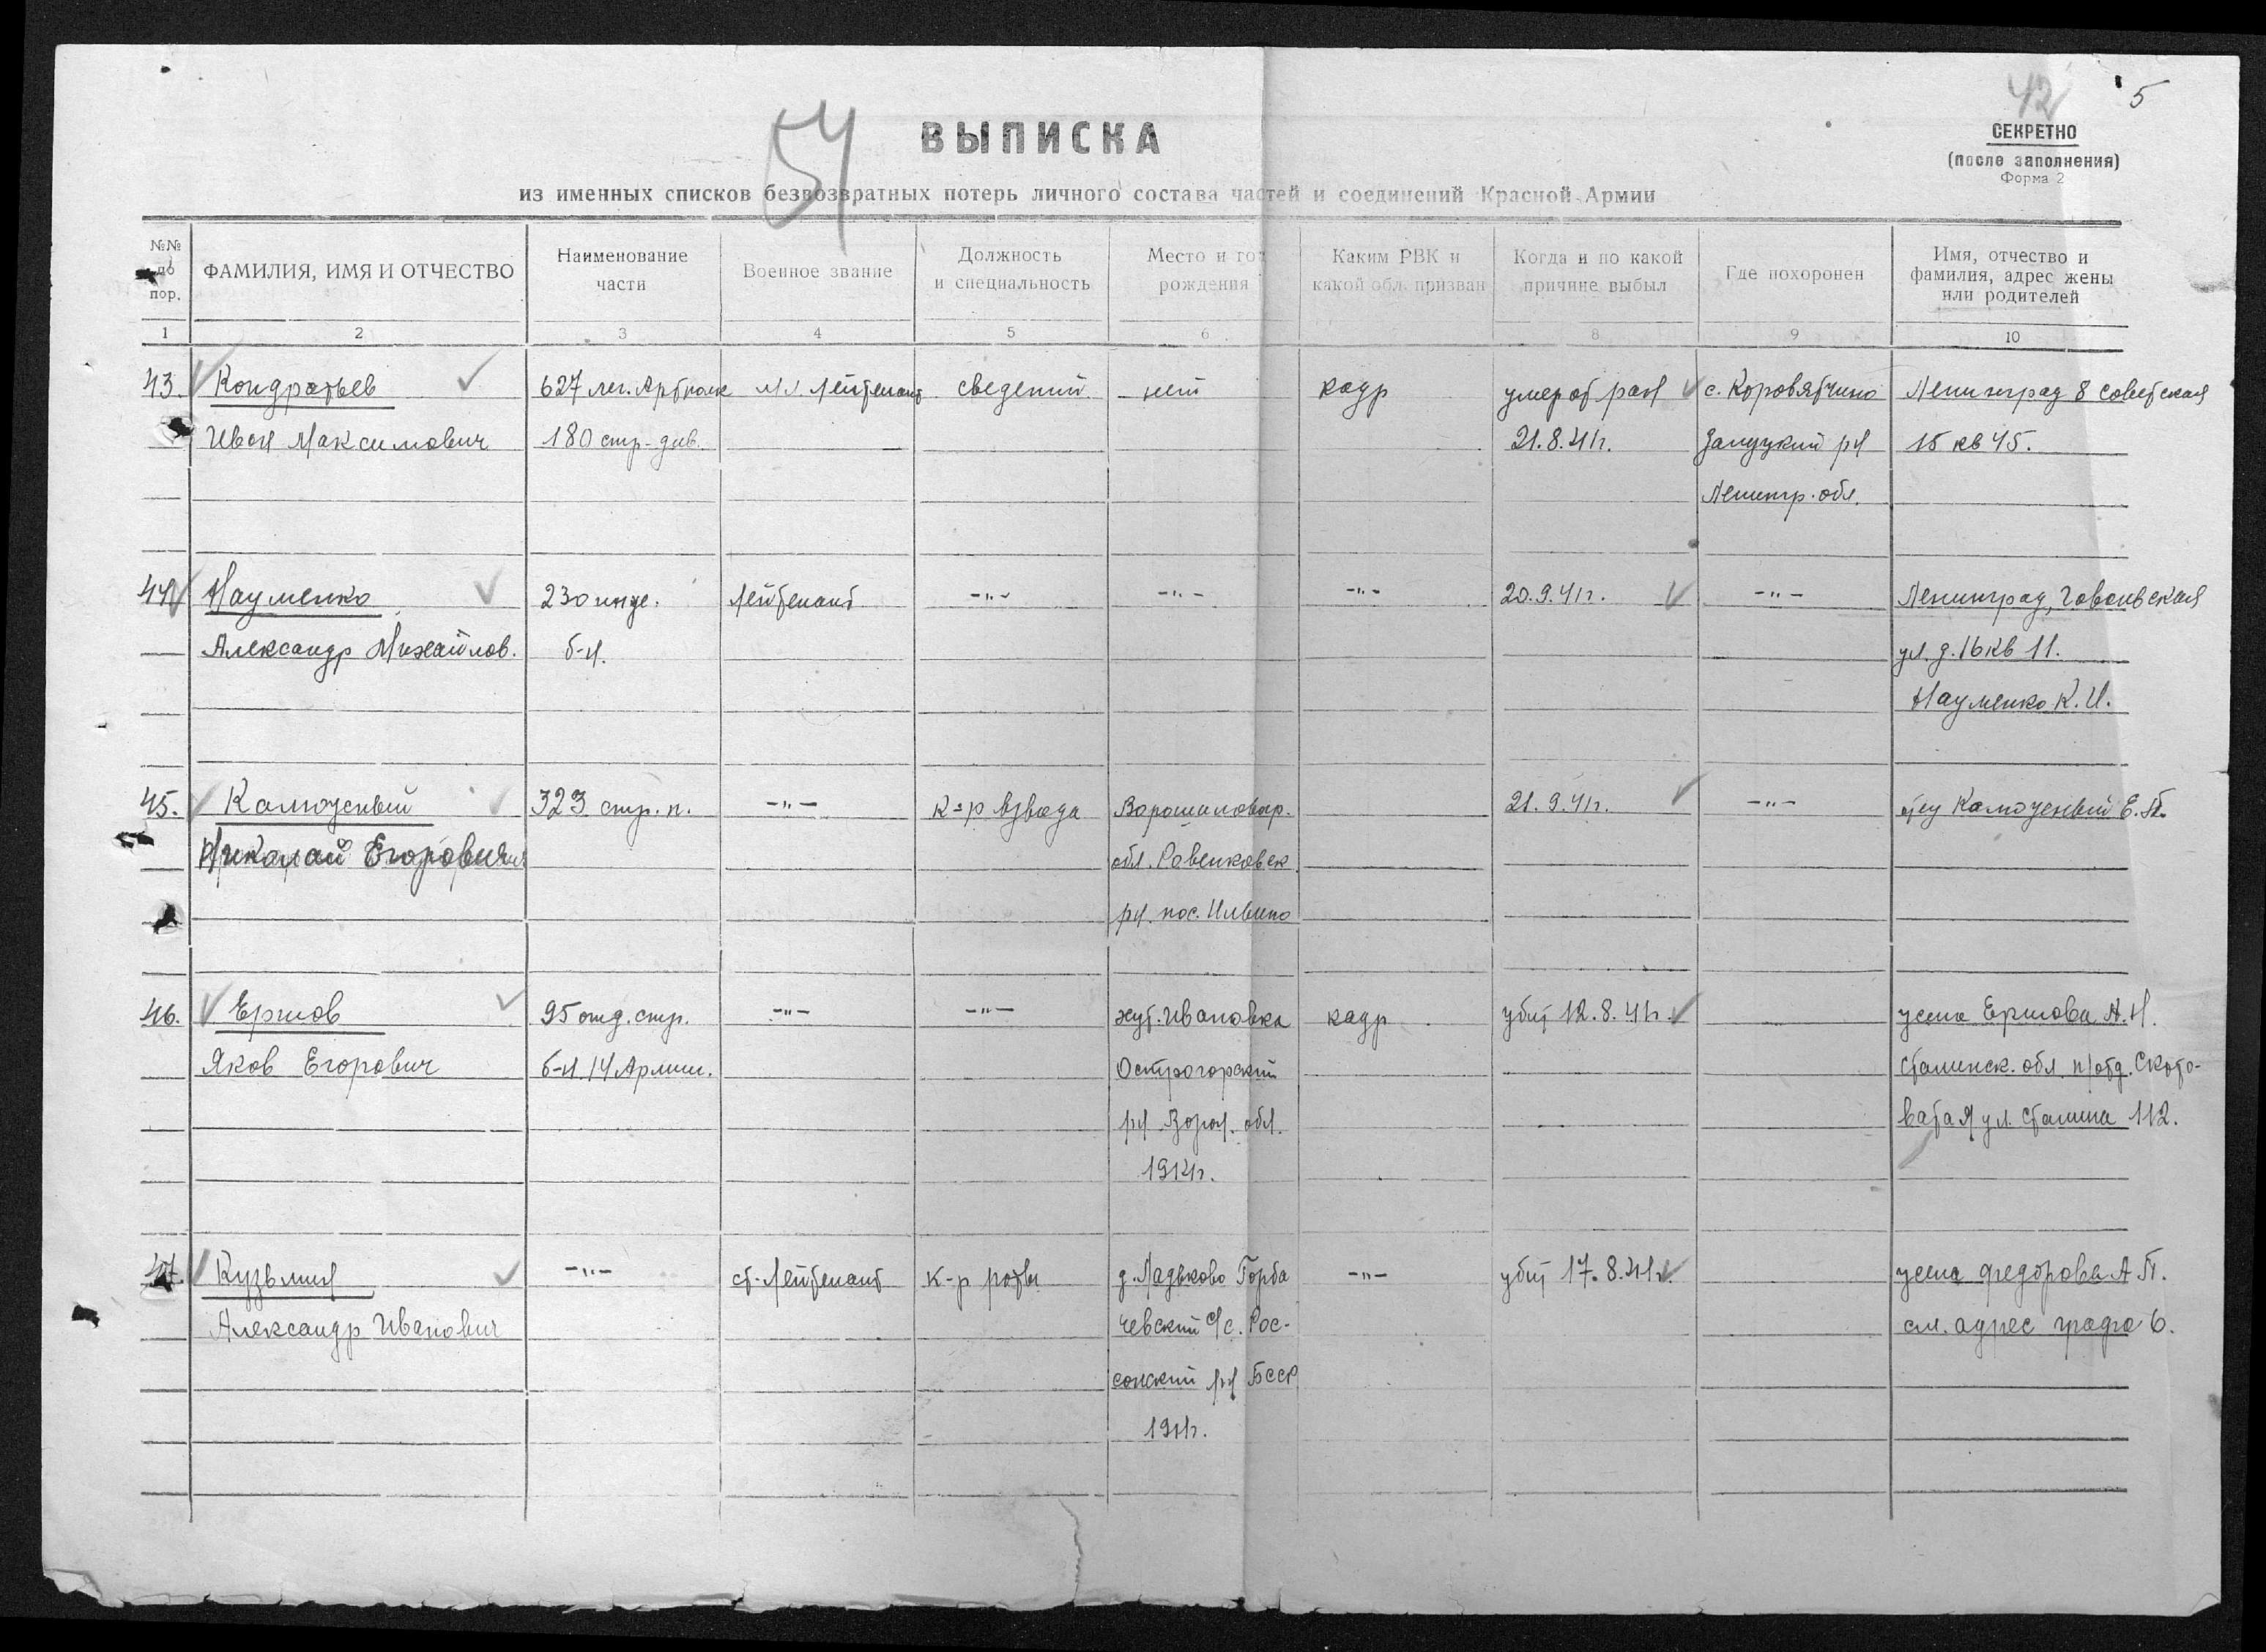 42 5
54
ВЫПИСКА
СЕКРЕТНО
(после заполнения)
Форма 2
из именных списков безвозвратных потерь личного состава частей и соединений Красной Армии
№№ по пор.
ФАМИЛИЯ, ИМЯ И ОТЧЕСТВО
Наименование части
Военное звание
Должность и специальность
Место и год рождения
Каким РВК и какой обл. призван
Когда и по какой причине выбыл
Где похоронен
Имя, отчество и фамилия, адрес жены или родителей
1 2 3 4 5 6 8 9 10
43. Кондратьев 627 лег. Артполк мл. Лейтенант сведений нет кадр умер от ран с. Коровятчино Ленинград 8 советская
Иван Максимович 180 стр-див. 21.8.41г. Залуцкий рн 15 кв 45.
Ленингр. обл.
44 Науменко 230 инже. Лейтенант -"- -"- -"- 20.9.41г. -"- Ленинград,
Александр Михайлов. б-н. ул. д.16 кв 11.
Науменко К. И.
45. 323 стр. п. -"- к-р взвода Ворошиловгр. 21.9.41г. -"- отец
Николай Егорович обл. Ровенковск
рн. пос.
46. Ершов 95 отд. стр. -"- -"- хут. Ивановка кадр убит 12.8.41г. жена Ершова А. Н.
Яков Егорович б-н. 14 Армии. Острогорский Сталинск. обл. п/отд. Ското-
рн Ворон. обл. ватая ул. Сталина 112.
1914г.
47. Кузьмин -"- ст-Лейтенант к-р роты д. Ладьково Горба -"- убит 17.8.41г. жена Федорова А П.
Александр Иванович чевский с/с. Рос- см. адрес графа 6.
сонский рн БССР
1911г.